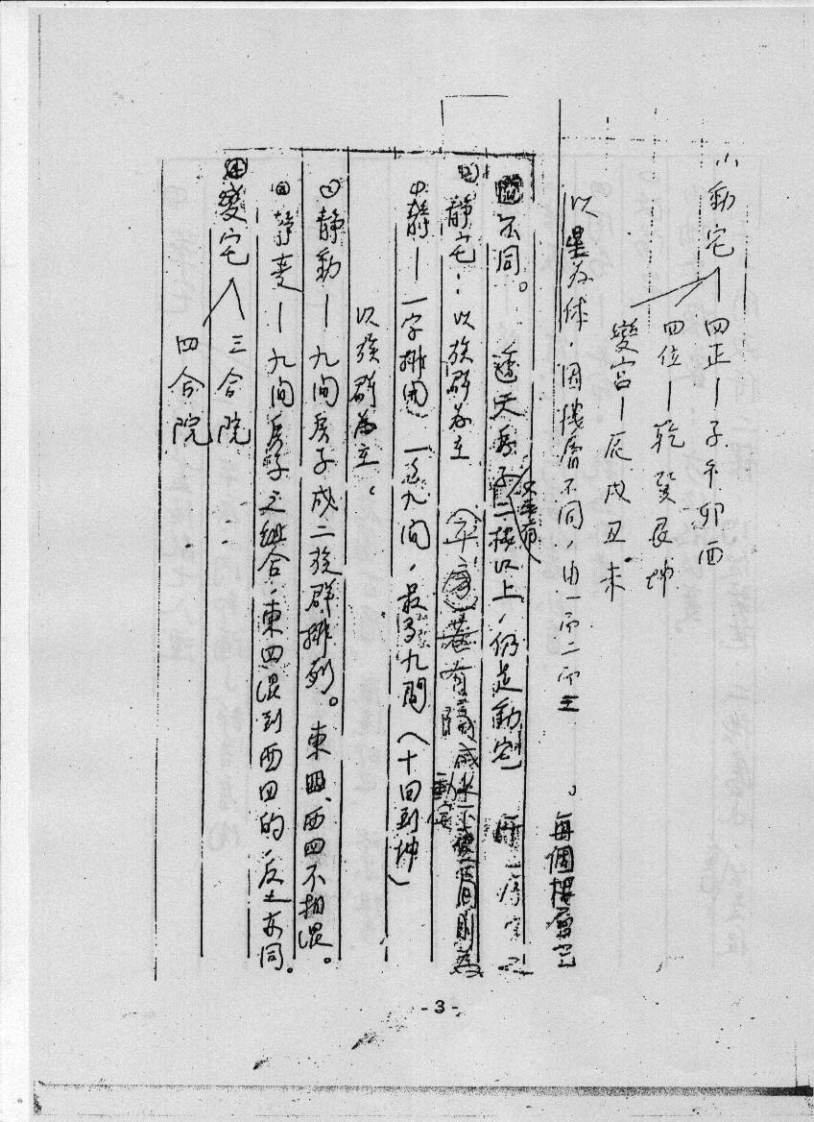 動宅—四正—子午卯酉
四位—乾巽艮坤
變宮—辰戌丑未
以星為体,因樓層不同,由一而二而三。每個樓層宅
不同。透天房子二楼以上,仍是動宅
靜宅:以族群為主(平房)若有隔成 不變 間則為
動宅
靜—一字排開 一至九间,最多九間(十回到坤)
以族群為主。
靜動—九间房子成二族群排列。東四、西四不相混。
靜变—九间房子之组合,東四混到西四的,反之亦同。
變宅 三合院:
四合院:
- 3 -